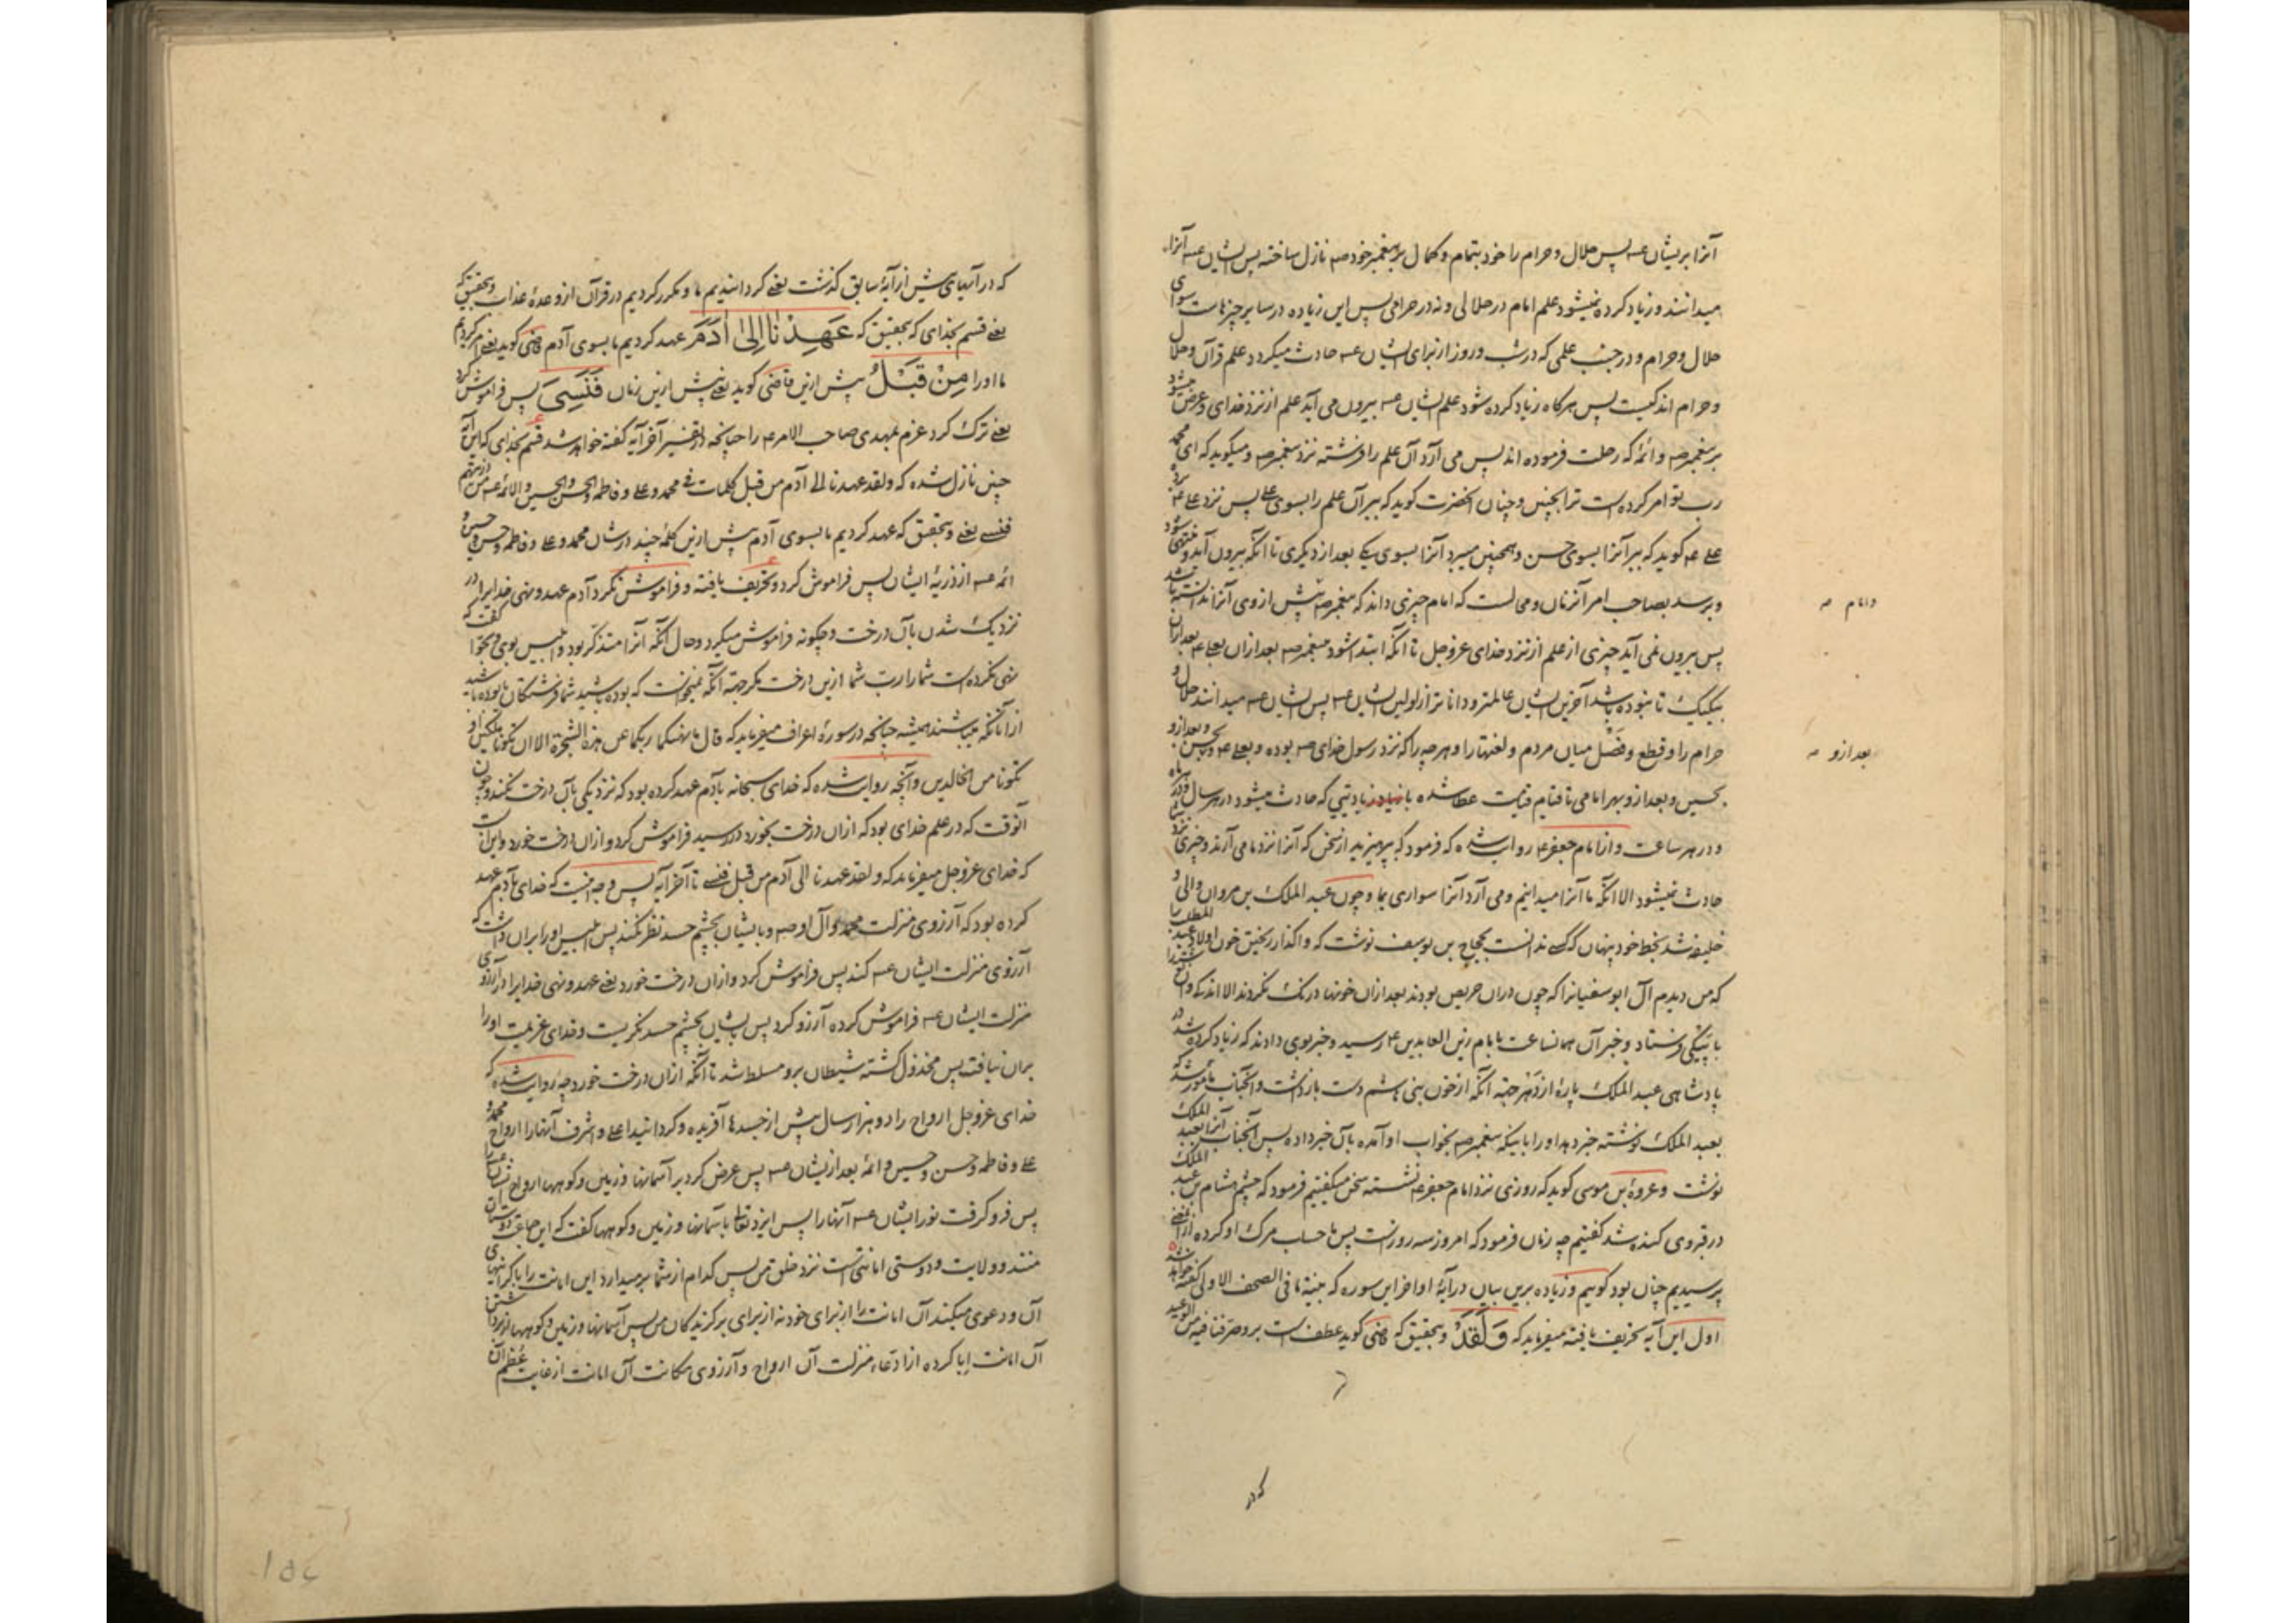 آنرا بریشان عـ پس حلال و حرام را خود بتمام و کمال بر پیغمبر خود صـ نازل ساخته پس ایشان عـ آنرا
میدانند و زیاد کرده نمیشود علم امام در حلالی و نه در حرامی پس این زیاده در سایر چیزهاست سوای
حلال و حرام و در جنب علمی که در شب و روز از برای ایشان عـ حادث میگردد علم قرآن و حلال
و حرام اندکیست پس هرکاه زیاد کرده شود علم ایشان عـ بیرون می آید علم از نزد خدای و عرض میشود
بر پیغمبر صـ و ائمه که رحلت فرموده اند پس می آرد آن علم را فرشته نزد پیغمبر صـ و میکوید که ای محمد
رب تو امر کرده است ترا بچنین و چنان آنحضرت کوید که ببر آن علم را بسوی علی پس نزد علی عـ برد
علی عـ کوید که ببر آنرا بسوی حسن و همچنین میبرد آنرا بسوی یکی بعد از دیکری تا آنکه بیرون آید و منتهی شود
و برسد بصاحب امر آنزمان و محالست که امام چیزی داند که پیغمبر صـ پیش از وی آنرا ندانسته باشد
وامام صـ
پس بیرون نمی آید چیزی از علم از نزد خدای عزوجل تا آنکه ابتدا شود بپیغمبر صـ بعد ازان بعلی عـ بعد ازان
بیکیک تا نبوده باشد آخرین ایشان عالمتر و داناتر از اولین ایشان عـ پس ایشان عـ میدانند حلال و
حرام را و قطع و فصل میان مردم و لغتها را و هرچه را که نزد رسول خدای صـ بوده و بعلی عـ و بحسن و بعد ازو
بعد ازو صـ
بحسین و بعد ازو بهر امامی تا قیام قیامت عطا شده با زیادتیی که حادث میشود در هر سال و در هر ماه
و در هر ساعت و از امام جعفر عـ روایت شده که فرمود که بپرهیزید از سخن که آنرا نزد ما می آرند و چیزی نزد شما
حادث نمیشود الا آنکه ما آنرا میدانیم و می آرد آنرا سواری بما و چون عبد الملک بن مروان والی و
خلیفه شد بخط خود پنهان که کسی ندانست بحجاج بن یوسف نوشت که واکذار ریختن خون اولاد عبد المطلب را
که من دیدم آل ابو سفیانرا که چون دران حریص بودند بعد ازان خونها درنک نکردند الا اندکی و آن
پنهانی فرستاد و خبر آن همانساعت بامام زین العابدین عـ رسید و خبر بوی دادند که زیاد کرده شد در
پادشاهی عبد الملک پارهٔ از دهر جهة آنکه از خون بنی هاشم دست بازداشت و آنجناب مامور شد که
بعبد الملک نوشته خبر دهد او را باینکه پیغمبر صـ بخواب او آمده بآن خبر داده پس آنجناب آنرا بعبد الملک
نوشت و عروة بن موسی کوید که روزی نزد امام جعفر عـ نشسته سخن میکفتیم فرمود که چشم هشام بن عبد الملک
در قبر وی کنده شد کفتیم چه زمان فرمود که امروز سه روزست پس ما حساب مرک او کرده ازان
پرسیدیم چنان بود کوییم و زیاده برین بیان در آیهٔ اواخر این سوره که بینة ما فی الصحف الاولی کفته خواهد شد
اول این آیه تحریف یافته میفرماید که وَلَقَدْ و بتحقیق که قاضی کوید عطف است بر و صرفنا فیه من الوعید
که در
که در آیهای پیش از آیهٔ سابق کذشت یعنی کردانیدیم ما و مکرر کردیم در قرآن از وعدهٔ عذاب و بتحقیق که
یعنی قسم بخدای که بتحقیق که عَهِدْنَا إِلَىٰ آدَمَ عهد کردیم ما بسوی آدم قاضی کوید یعنی امر کردیم
ما او را مِنْ قَبْلُ پیش ازین قاضی کوید یعنی پیش ازین زمان فَنَسِيَ پس فراموش کرد
یعنی ترک کرد عزم بمهدی صاحب الامر عـ را چنانچه در تفسیر آخر آیه کفته خواهد شد قسم بخدای که این آیه
چنین نازل شده که ولقد عهدنا الی آدم من قبل کلمات فی محمد و علی و فاطمه والحسن والحسین والائمه عـ من ذریتهم
فنسی یعنی و بتحقیق که عهد کردیم ما بسوی آدم پیش ازین کلمهٔ چند در شان محمد و علی و فاطمه و حسن و حسین و
ائمه عـ از ذریهٔ ایشان پس فراموش کرد و تحریف یافته و فراموش نکرد آدم عهد و نهی خدایرا در
نزدیک شدن بآن درخت و چکونه فراموش میکرد و حال آنکه آنرا متذکر بود و ابلیس بوی و بحوا کفت که
نهی نکرده است شما را رب شما ازین درخت مکر جهة آنکه نمیخواست که بوده باشید شما فرشتکان یا بوده باشید
از آنانکه میباشند همیشه چنانچه در سورهٔ اعراف میفرماید که قال ما نهیکما ربکما عن هذه الشجرة الا ان تکونا ملکین او
تکونا من الخالدین و آنچه روایت شده که خدای سبحانه بآدم عهد کرده بود که نزدیکی بآن درخت نکند و چون
آنوقت که در علم خدای بود که ازان درخت بخورد در رسید فراموش کرد و ازان درخت خورد و اینست
که خدای عزوجل میفرماید که ولقد عهدنا الی آدم من قبل فنسی تا آخر آیه پس وجه اینست که خدای بآدم عهد
کرده بود که آرزوی منزلت محمد و آل او صـ و بایشان بچشم حسد نظر نکند پس ابلیس او را بران داشت که
آرزوی منزلت ایشان عـ کند پس فراموش کرد و ازان درخت خورد یعنی عهد و نهی خدایرا در آرزوی
منزلت ایشان عـ فراموش کرده آرزو کرد پس بایشان بچشم حسد نکریست و خدای عزیمت او را
بران نیافت پس مخذول کشته شیطان برو مسلط شد تا آنکه ازان درخت خورد چه روایت شده که
خدای عزوجل ارواح را دو هزار سال پیش از جسدها آفریده و کردانید اعلی و اشرف آنها را ارواح محمد و
علی و فاطمه و حسن و حسین و ائمهٔ بعد ازیشان عـ پس عرض کرد بر آسمانها و زمین و کوهها ارواح ایشان را
پس فرو کرفت نور ایشان عـ آنها را پس ایزد تعالی بآسمانها و زمین و کوهها کفت که این جماعت دوستان
منند و ولایت و دوستی امانتی است نزد خلق من پس کدام از شما برمیدارد این امانت را با کرانیهای
آن و دعوی میکند آن امانت را از برای خود نه از برای برکزیدکان من پس آسمانها و زمین و کوهها از برداشتن
آن امانت ابا کرده از ادعاء منزلت آن ارواح و آرزوی مکانت آن امانت از غایت عُظم آن